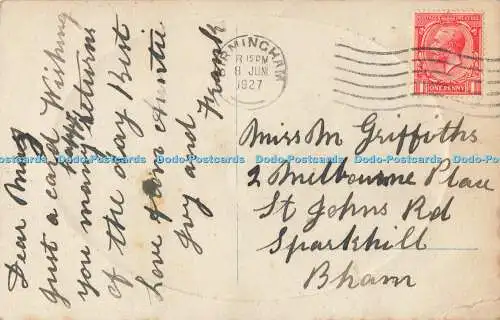 Dear Mug
Just a card Wishing
you many happy returns
of the day Best
Love from Auntie
Ivy and Frank
BIRMINGHAM
15 PM
8 JUN
1927
ONE PENNY
Miss M Griffiths
2 Melbourne Place
St Johns Rd
Sparkhill
Bham
Dodo-Postcards Dodo-Postcards Dodo-Postcards Dodo-Postcards Dodo-Postcards Dodo-Postcards